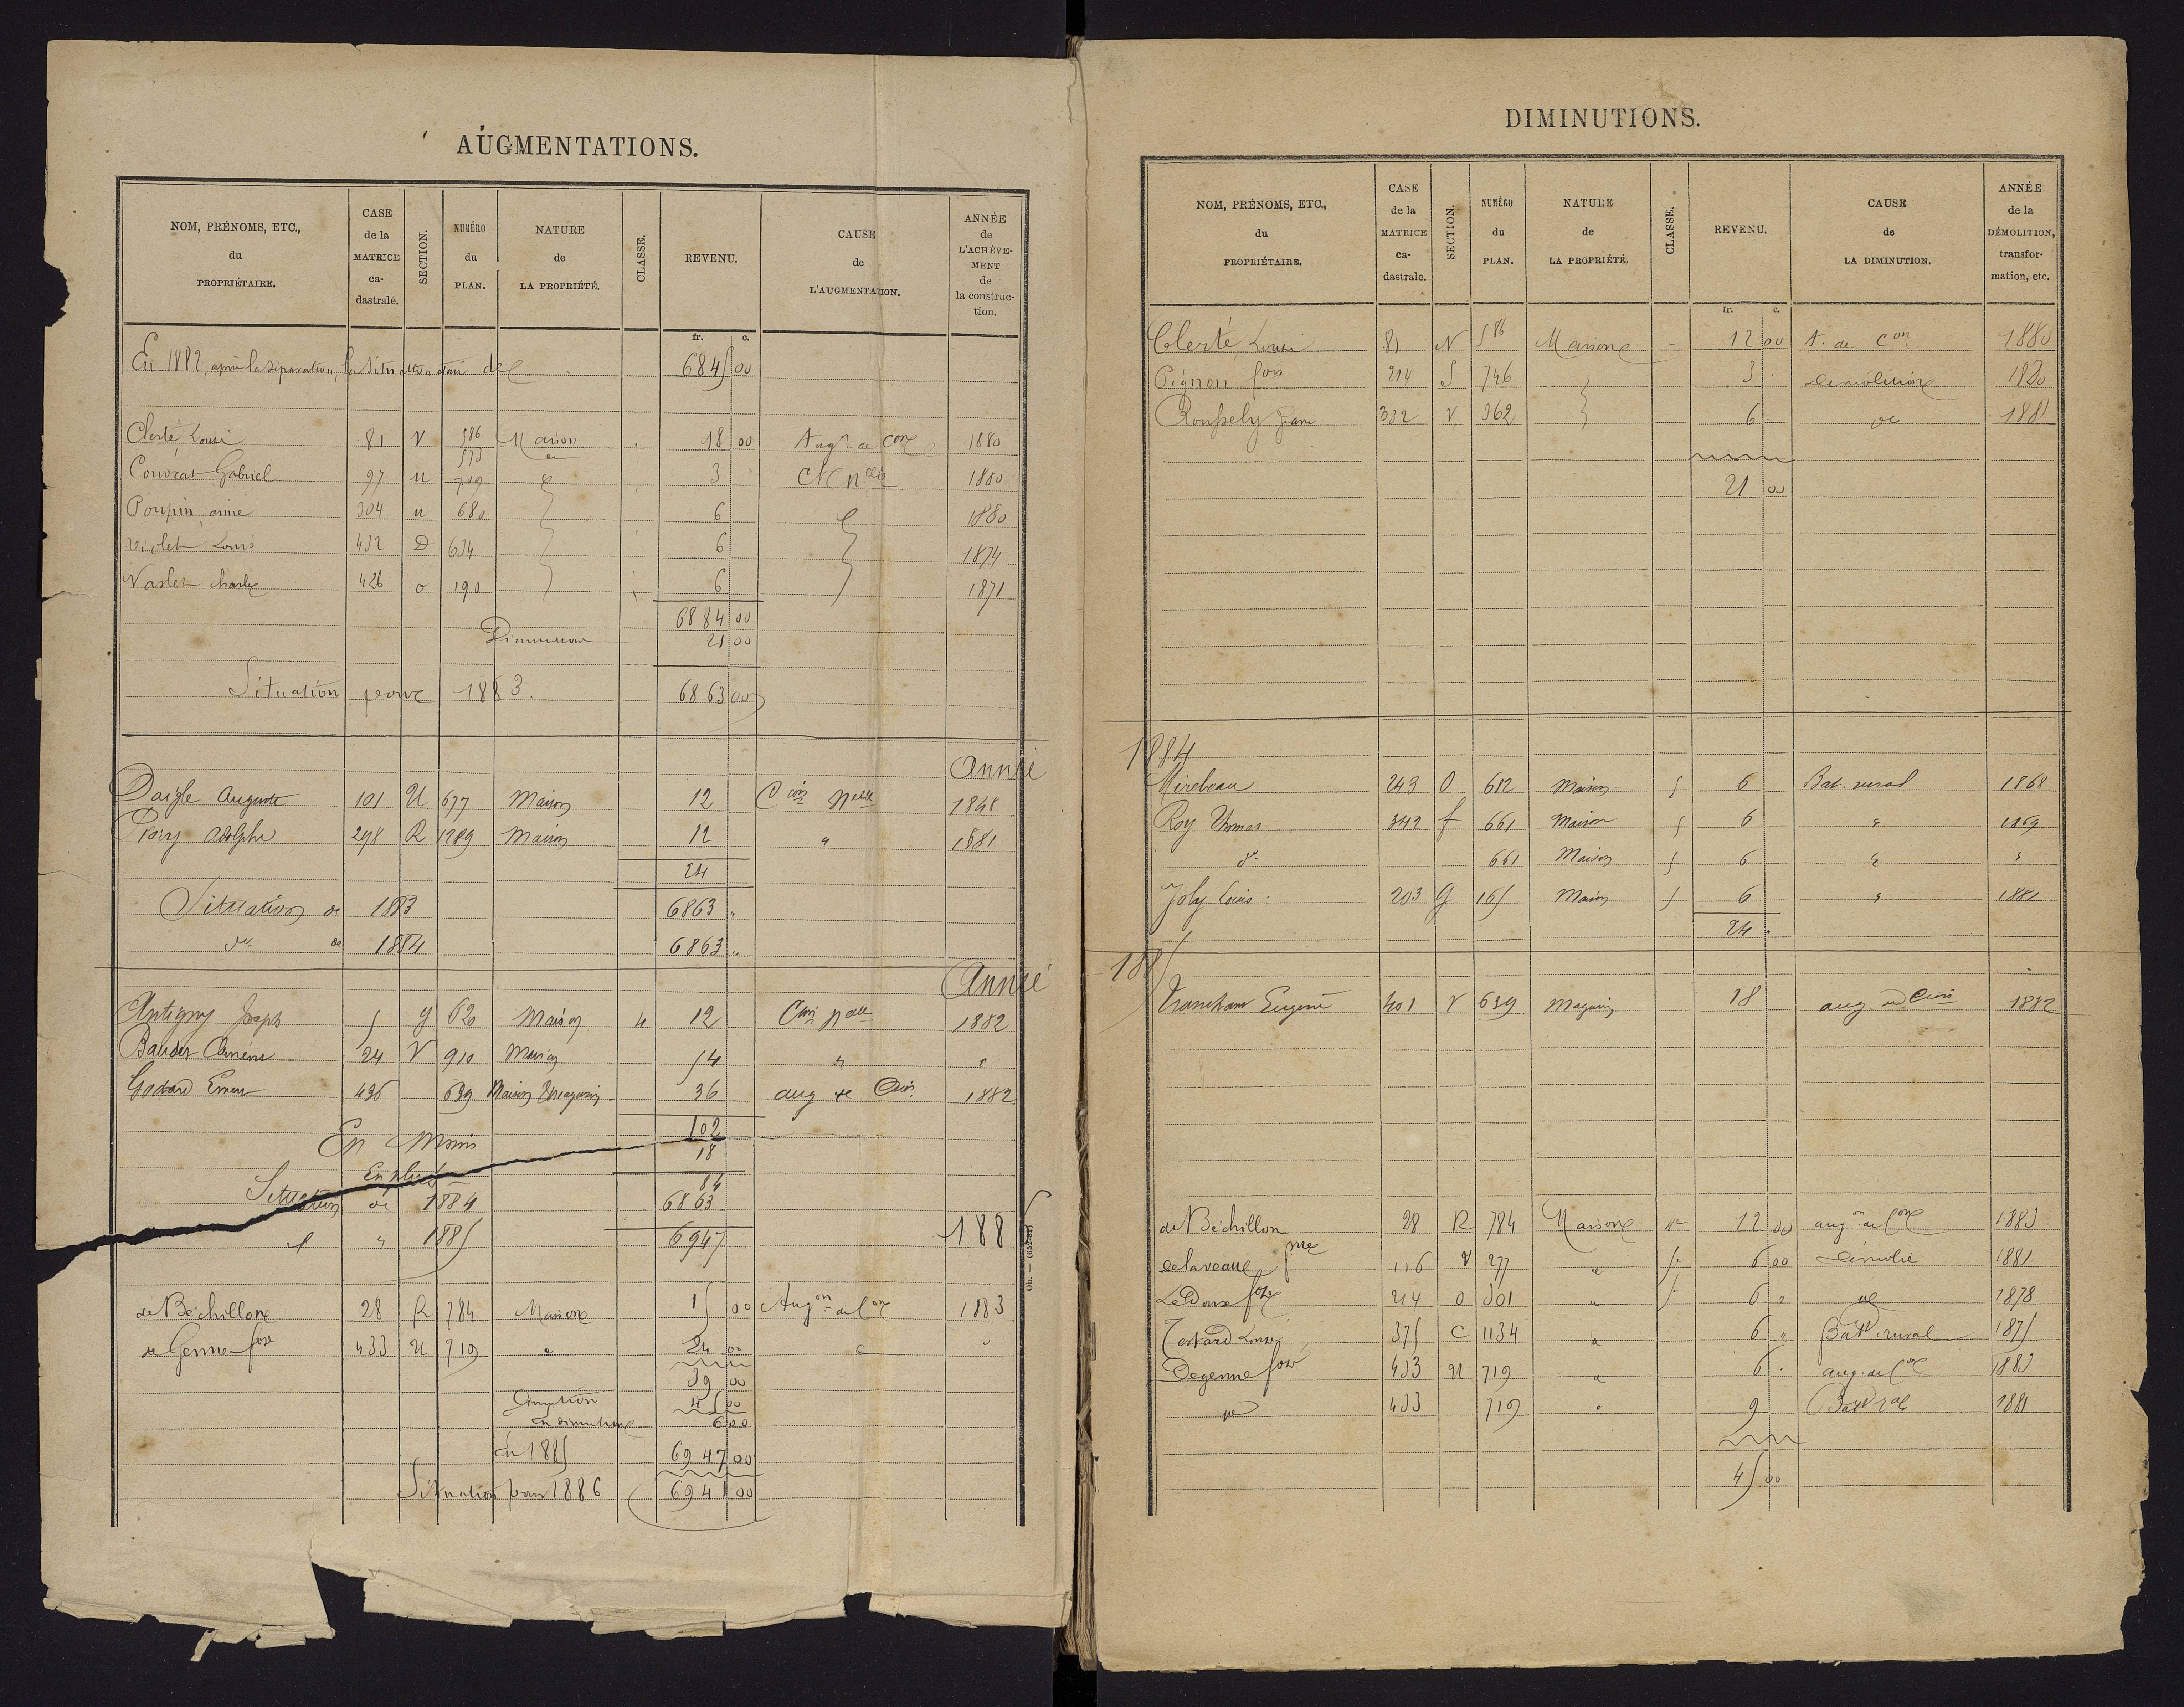 AUGMENTATIONS.
NOM, PRÉNOMS, ETC., du PROPRIÉTAIRE. | CASE de la MATRICE ca-dastrale. | SECTION. | NUMÉRO du PLAN. | NATURE de LA PROPRIÉTÉ. | CLASSE. | REVENU. | CAUSE de L'AUGMENTATION. | ANNÉE de L'ACHÈVE-MENT de la construc-tion.
fr. c.
En 1882, après la séparation, la situation était de 6845 00
Clerté Louis 81 V 586 Maison 18 00 Augon de Con 1880
573
Couvrat Gabriel 97 U 709 3 Con nelle 1880
Poupin aimé 304 U 680 6 1880
Violet Louis 432 D 634 6 1874
Varlet Charles 426 O 190 6 1871
6884 00
Diminution 21 00
Situation pour 1883. 6863 00
Année
Daigle Auguste 101 U 677 Maison 12 Cion nelle 1848
Piorry Adolphe 298 R 1289 Maison 12 " 1881
24
Situation de 1883 6863 "
do de 1884 6863 "
Année
Antigny Joseph 5 G 62 Maison 4 12 Cion nelle 1882
24 V 910 Maison 54 " "
Godard 436 639 Maison & magasin 36 aug de Cion 1882
102
En Moins 18
En plus 84
Situation de 1884 6863
" 1885 6947
1885
de Béchillon 28 R 784 Maison 15 00 Augon de Con 1883
de Genne fois 433 U 719 " 24 00 " "
39 00
Diminution 45 00
en diminution 6 00
en 1885 6947 00
Situation pour 1886 6941 00
DIMINUTIONS.
NOM, PRÉNOMS, ETC., du PROPRIÉTAIRE. | CASE de la MATRICE ca-dastrale. | SECTION. | NUMÉRO du PLAN. | NATURE de LA PROPRIÉTÉ. | CLASSE. | REVENU. | CAUSE de LA DIMINUTION. | ANNÉE de la DÉMOLITION, transfor-mation, etc.
fr. c.
Clerté Louis 81 V 586 Maison 12 00 A. de Con 1880
Pignon fois 214 S 746 3 démolition 1880
332 V 362 6 do 1881
21 00
1884
Mirebeau 243 O 612 Maison 5 6 Bat. rural 1868
Roy Thomas 342 f 661 Maison 5 6 " 1869
do 661 Maison 5 6 " "
Joly Louis 203 G 165 Maison 5 6 " 1881
24 "
1885
Tranchant Eugène 401 V 639 magasin 18 aug. de Cion 1882
de Béchillon 28 R 784 Maison 12 00 augon de Con 1883
delaveau pre 116 V 277 " 5 6 00 démolie 1881
Ledoux fois 214 O 301 " 5 6 " do 1878
Testard Louis 375 C 1134 " 6 " Batt rural 1875
Degenne fois 433 U 719 " 6 " aug. de Con 1883
do 433 719 " 9 Batt ral 1881
45 00